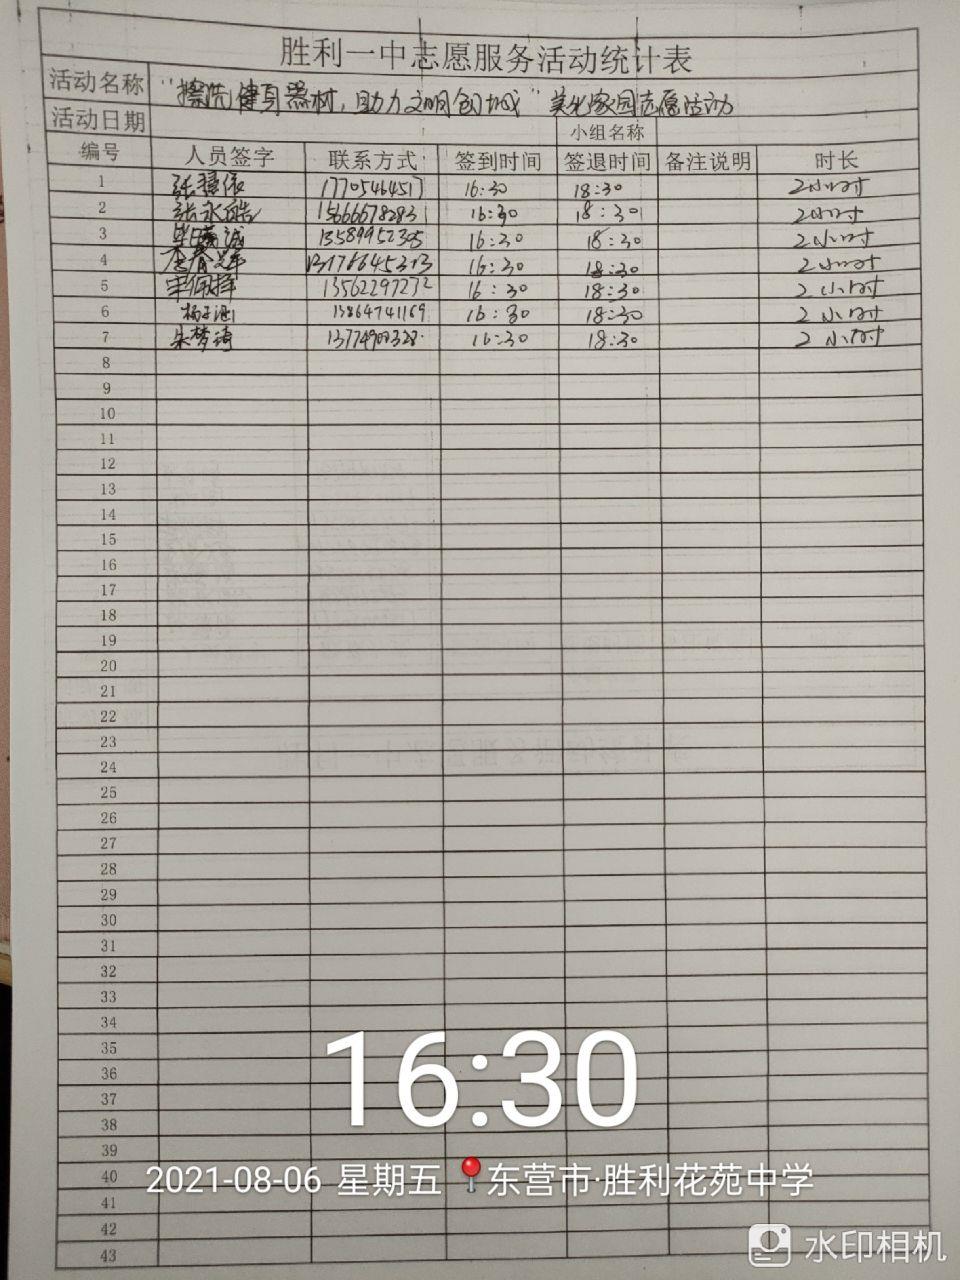 胜利一中志愿服务活动统计表
活动名称 "擦洗健身器材，助力文明创城"美化家园志愿活动
活动日期 小组名称
编号 人员签字 联系方式 签到时间 签退时间 备注说明 时长
1 16:30 18:30 2小时
2 张永皓 15666678283 16:30 18:30 2小时
3 13589952305 16:30 18:30 2小时
4 16:30 18:30 2小时
5 13562297272 16:30 18:30 2小时
6 13864741169 16:30 18:30 2小时
7 朱梦琦 16:30 18:30 2小时
8
9
10
11
12
13
14
15
16
17
18
19
20
21
22
23
24
25
26
27
28
29
30
31
32
33
34
35
36
37
38
39
40
41
42
43
16:30
2021-08-06 星期五 东营市·胜利花苑中学
水印相机